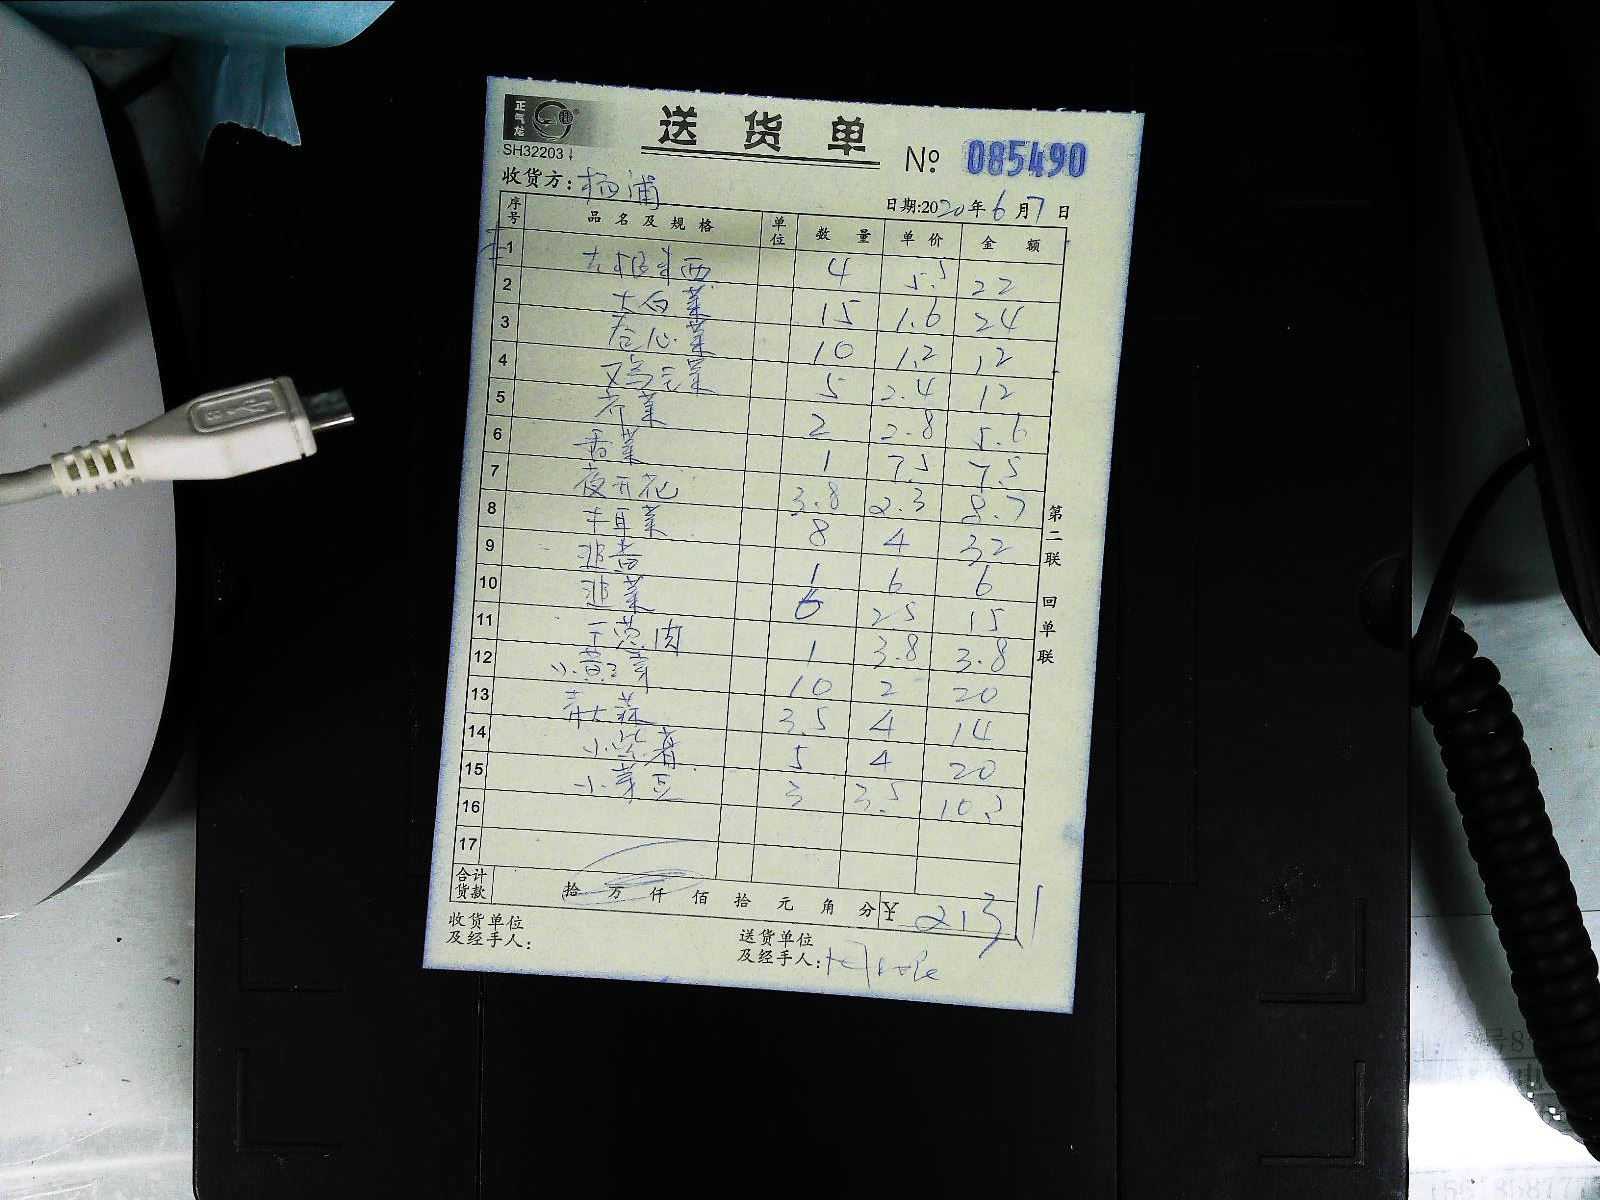 正气龙
SH32203
送货单
№ 085490
收货方：杨浦
日期:2020年6月7日
序号 品名及规格 单位 数量 单价 金额
1 4 5.5 22
2 大白菜 15 1.6 24
3 卷心菜 10 1.2 12
4 鸡毛菜 5 2.4 12
5 芹菜 2 2.8 5.6
6 香菜 1 7.5 7.5
7 夜开花 3.8 2.3 8.7
8 木耳菜 8 4 32
9 1 6 6
10 韭菜 6 2.5 15
11 1 3.8 3.8
12 10 2 20
13 青大蒜 3.5 4 14
14 5 4 20
15 小芽豆 3 3.5 10.5
16
17
合计货款 拾 万 仟 佰 拾 元 角 分 ¥ 213.1
收货单位及经手人：
送货单位及经手人：
第二联 回单联